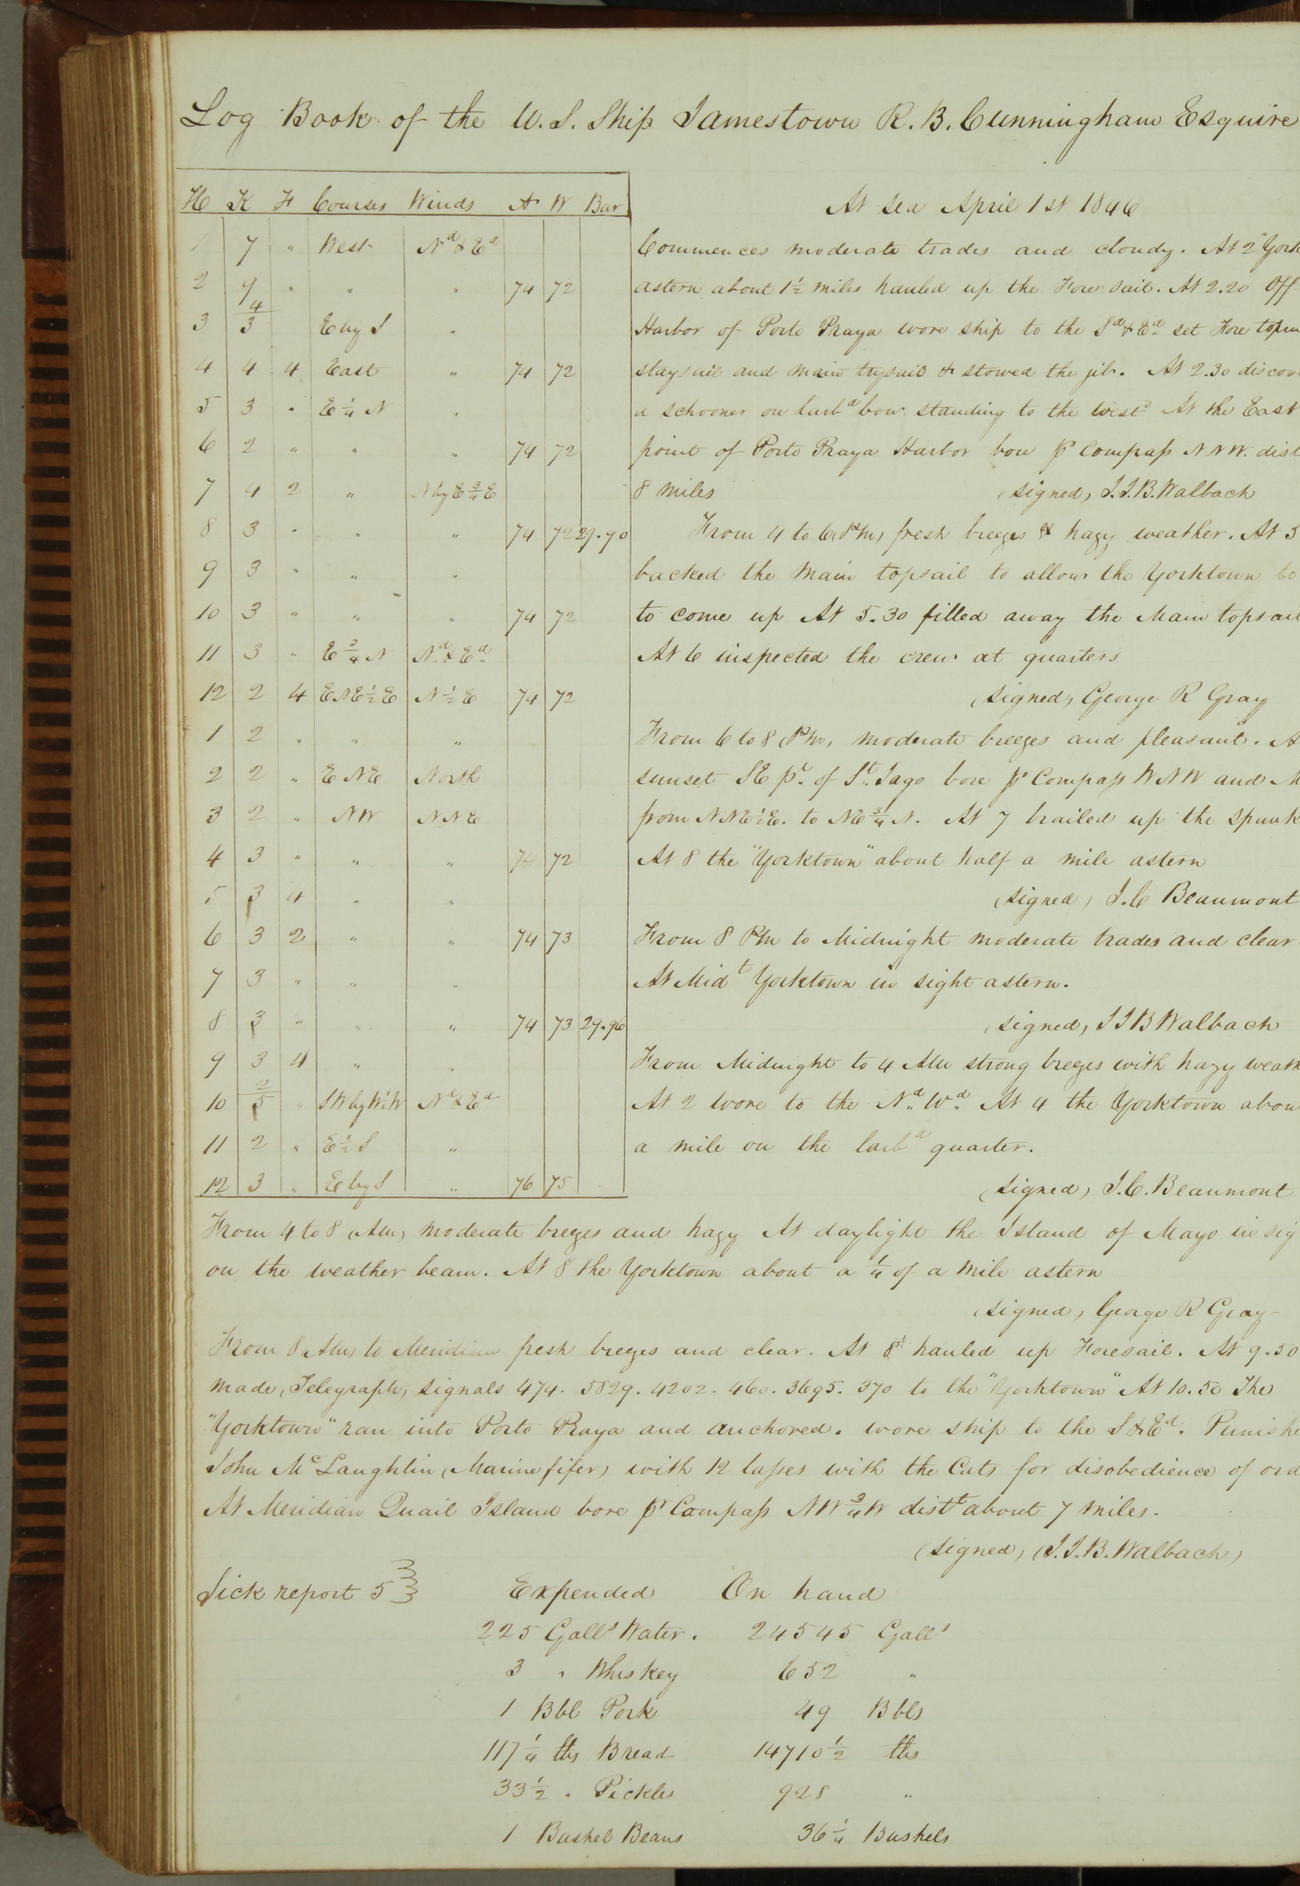 Log Book of the U.S. Ship Jamestown R. B. Cunningham Esquire
H K F Courses Winds A W Bar
1 7 " West Nd & Ed
2 " " " 74 72
3 E by S "
4 4 4 East " 74 72
5 3 " E 1/4 N "
6 2 " " " 74 72
7 4 2 " N by E 3/4 E
8 3 " " " 74 72 29.90
9 3 " " "
10 3 " " " 74 72
11 3 " E 3/4 N Nd & Ed
12 2 4 ENE 1/2 E N 1/2 E 74 72
1 2 " " "
2 2 " ENE North
3 2 " NW NNE
4 3 " " " 74 72
5 3 4 " "
6 3 2 " " 74 73
7 3 " " "
8 3 " " " 74 73 29.96
9 3 4 " "
10 2/5 " Nd & Ed
11 2 " E 1/2 S "
12 3 " E by S " 76 75
At Sea April 1st 1846
Commences moderate trades and cloudy. At 2 "York
astern about 1 1/2 miles hauled up the Fore sail. At 2.20 Off
Harbor of Porto Praya wore ship to the Sd & Ed set Fore topm
staysail and main trysail & stowed the jib. At 2.30 discov
a schooner on larbd bow standing to the westd At 4 the East
point of Porto Praya Harbor bore pr Compass NNW. dist
8 miles (signed) J.J.B. Walbach
From 4 to 6 PM, fresh breezes & hazy weather. At 5
backed the Main topsail to allow the Yorktown to
to come up At 5.30 filled away the Main topsail
At 6 inspected the crew at quarters
(signed) George R Gray
From 6 to 8 PM, moderate breezes and pleasant. A
sunset SE pt. of St. Jago bore pr Compass WNW and M
from NNE 1/2 E. to NE 3/4 N. At 7 brailed up the Spank
At 8 the "Yorktown" about half a mile astern
(signed) J.C Beaumont
From 8 PM to Midnight moderate trades and clear
At Midt Yorktown in sight astern.
(signed) J J B Walbach
From Midnight to 4 AM strong breezes with hazy weath
At 2 wore to the Nd. Wd. At 4 the Yorktown abou
a mile on the larbd quarter.
(signed) J.C. Beaumont
From 4 to 8 AM, moderate breezes and hazy At daylight the Island of Mayo in sig
on the weather beam. At 8 the Yorktown about a 1/4 of a Mile astern
(signed) George R Gray
From 8 AM, to Meridian fresh breezes and clear. At hauled up Foresail. At 9.30
made (Telegraph) signals 474. 5829. 4202. 460. 3695. 370 to the "Yorktown" At 10.50 The
"Yorktown" ran into Porto Praya and anchored. wore ship to the S & Ed. Punishe
John McLaughlin (Marine fifer) with 12 lashes with the Cats for disobedience of ord
At Meridian Quail Island bore pr Compass NW 3/4 W distt about 7 miles.
(signed) (J.J.B. Walbach)
Sick report 5
Expended On hand
225 Galls Water. 24545 Galls
3 " Whiskey 652 "
1 Bbl Pork 49 Bbls
117 1/4 lbs Bread 14710 1/2 lbs
33 1/2 " Pickles 928 "
1 Bushel Beans 36 1/4 Bushels